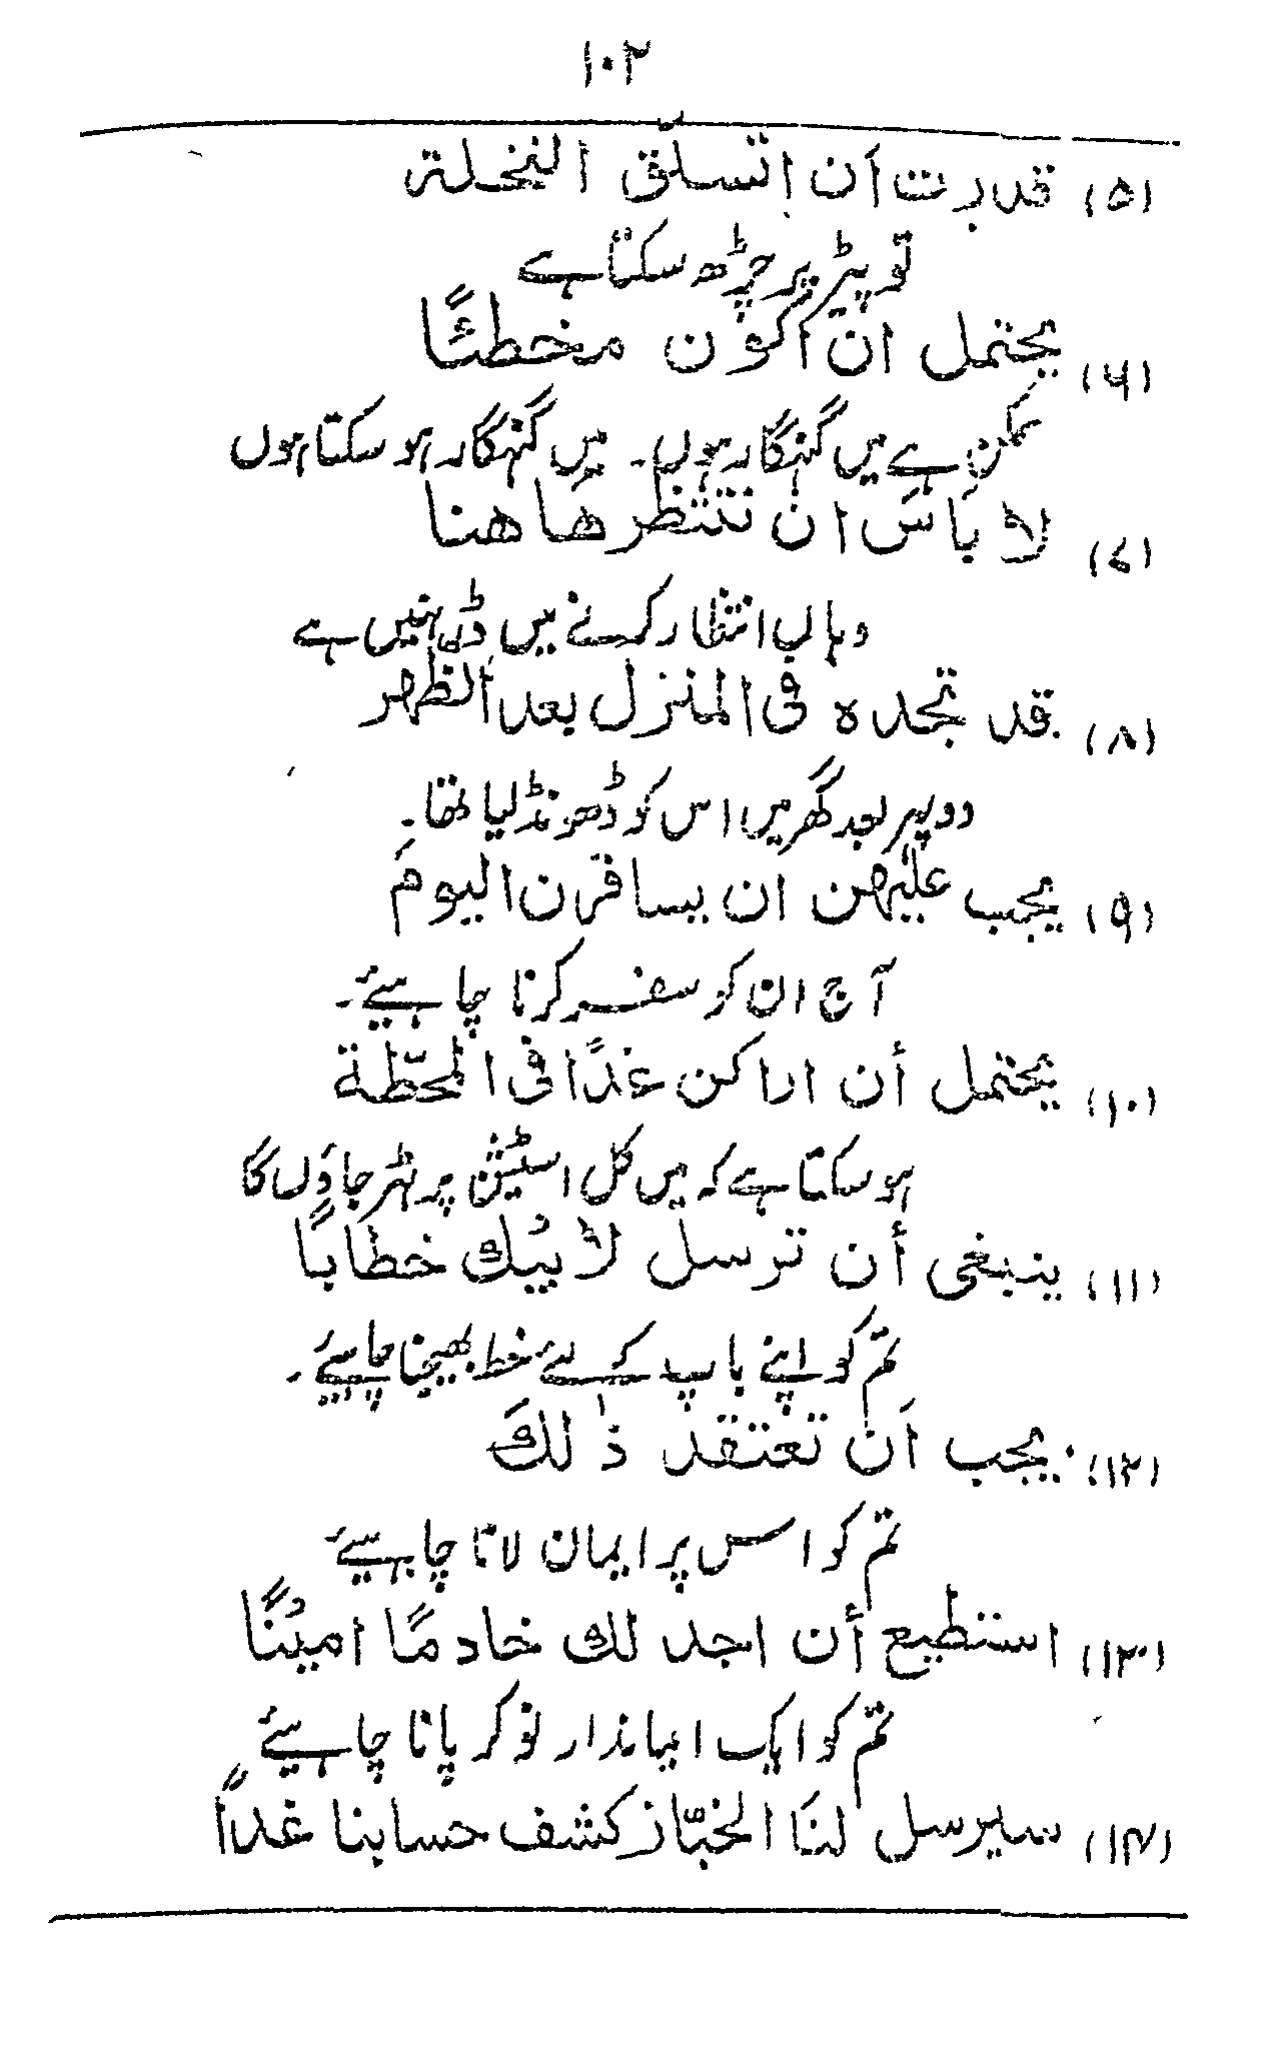 ۱۰۲
(۵) قدرت اَن اتسلّق النخلة
تو پیڑ پر چڑھ سکتا ہے
(۶) یحتمل ان أکون مخطئًا
ممکن ہے میں گنہگار ہوں۔ میں گنہگار ہو سکتا ہوں
(۷) لا بَاسَ ان تنتظر هُاهنا
وہاں انتظار کرنے میں ڈر نہیں ہے
(۸) قد تجده فی المنزل بعد الظهر
دوپہر بعد گھر میں اس کو ڈھونڈ لیا تھا۔
(۹) یجب علیهن اَن یسافرن الیومَ
آج ان کو سفر کرنا چاہیئے۔
(۱۰) یحتمل أن اراکن غدًا فی المحطّة
ہو سکتا ہے کہ میں کل اسٹیشن پر ٹہر جاؤں گا
(۱۱) ینبغی أن ترسل لأبیك خطابًا
تم کو اپنے باپ کے لئے خط بھیجنا چاہیئے۔
(۱۲) یجب اَن تعتقد ذٰلكَ
تم کو اس پر ایمان لانا چاہیئے
(۱۳) استطیع أن اجد لك خادمًا امینًا
تم کو ایک ایماندار نوکر پانا چاہیئے
(۱۴) سیرسل لنَا الخبّاز کشف حسابنا غداً